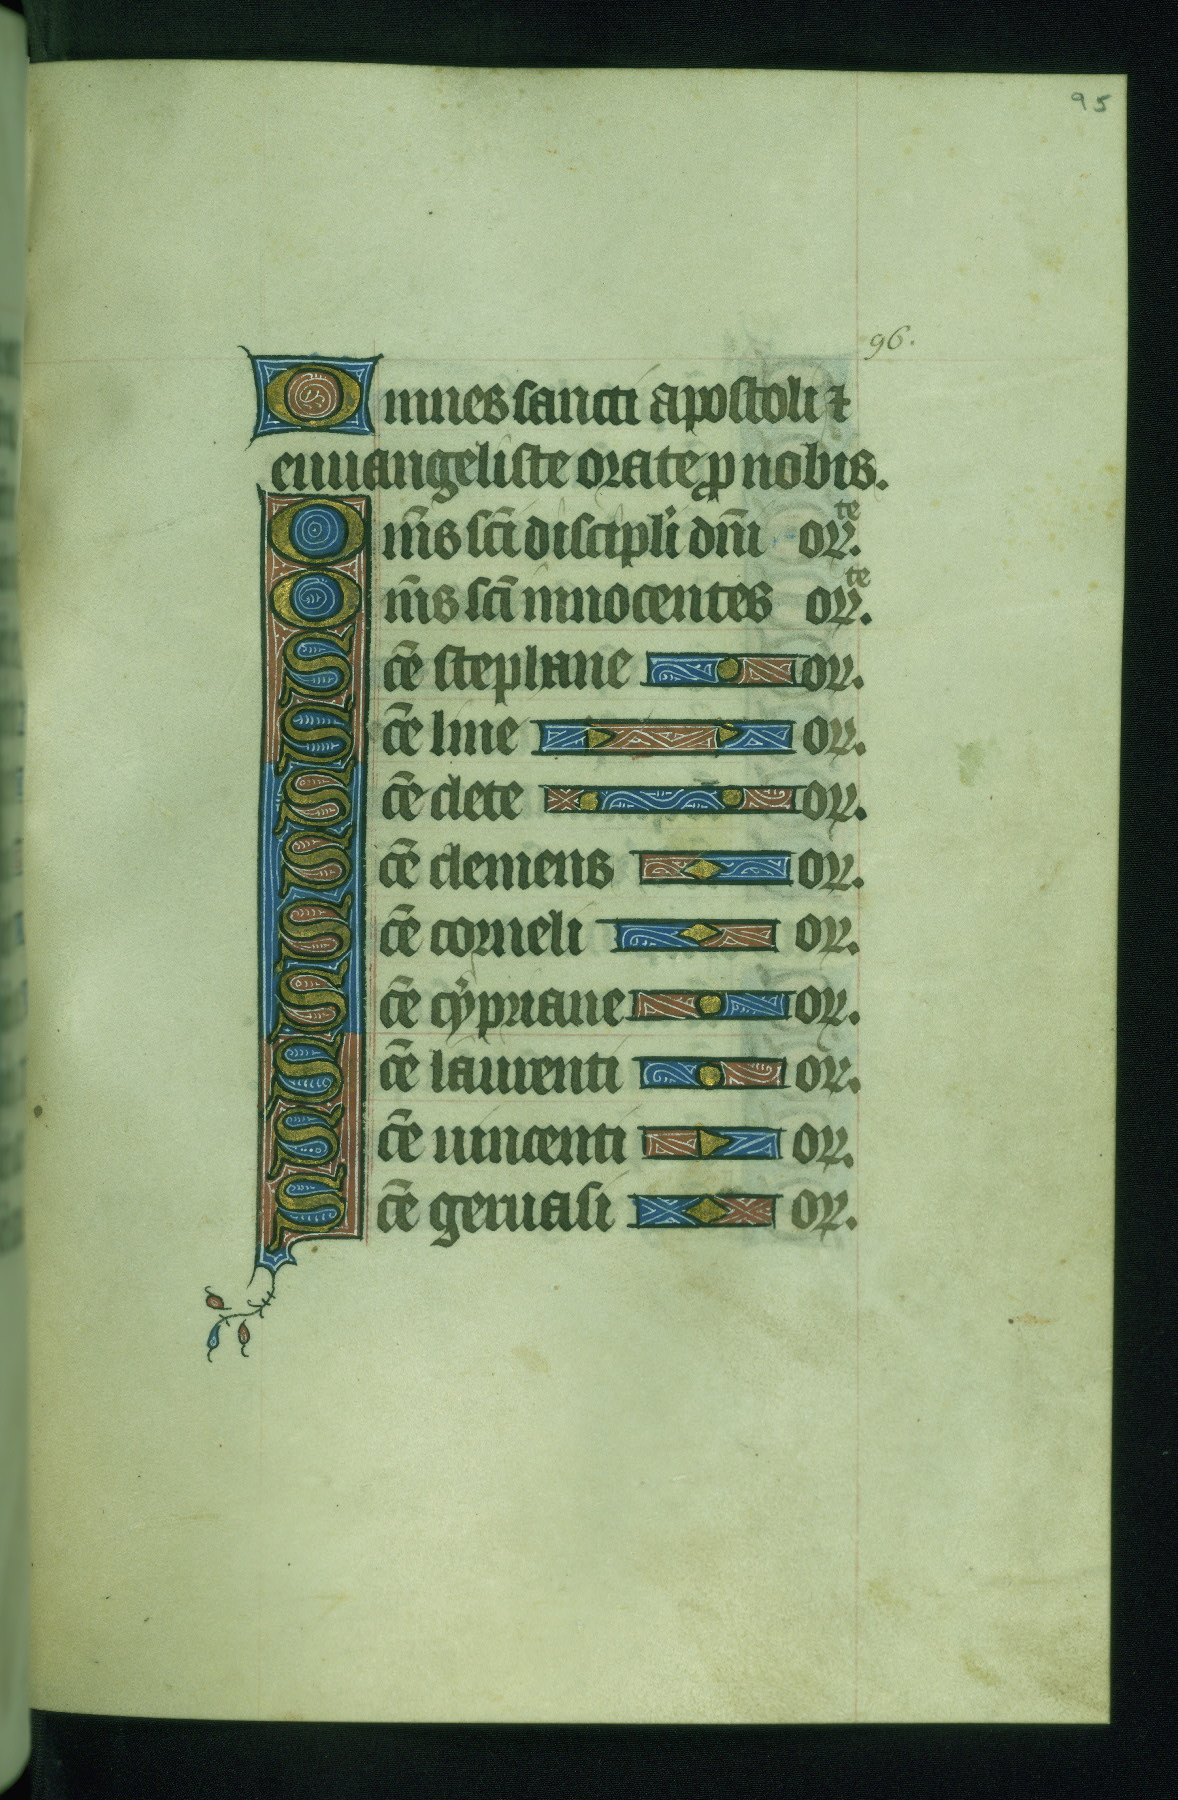 95
96.
Omnes sancti apostoli ⁊
euuangeliste orate ꝓ nobis.
Om̄s sc̄i discipl'i dn̄i or.te
Om̄s sc̄i innocentes or.te
Sc̄e stephane or.
Sc̄e line or.
Sc̄e clete or.
Sc̄e clemens or.
Sc̄e corneli or.
Sc̄e cypriane or.
Sc̄e laurenti or.
Sc̄e uincenti or.
Sc̄e geruasi or.